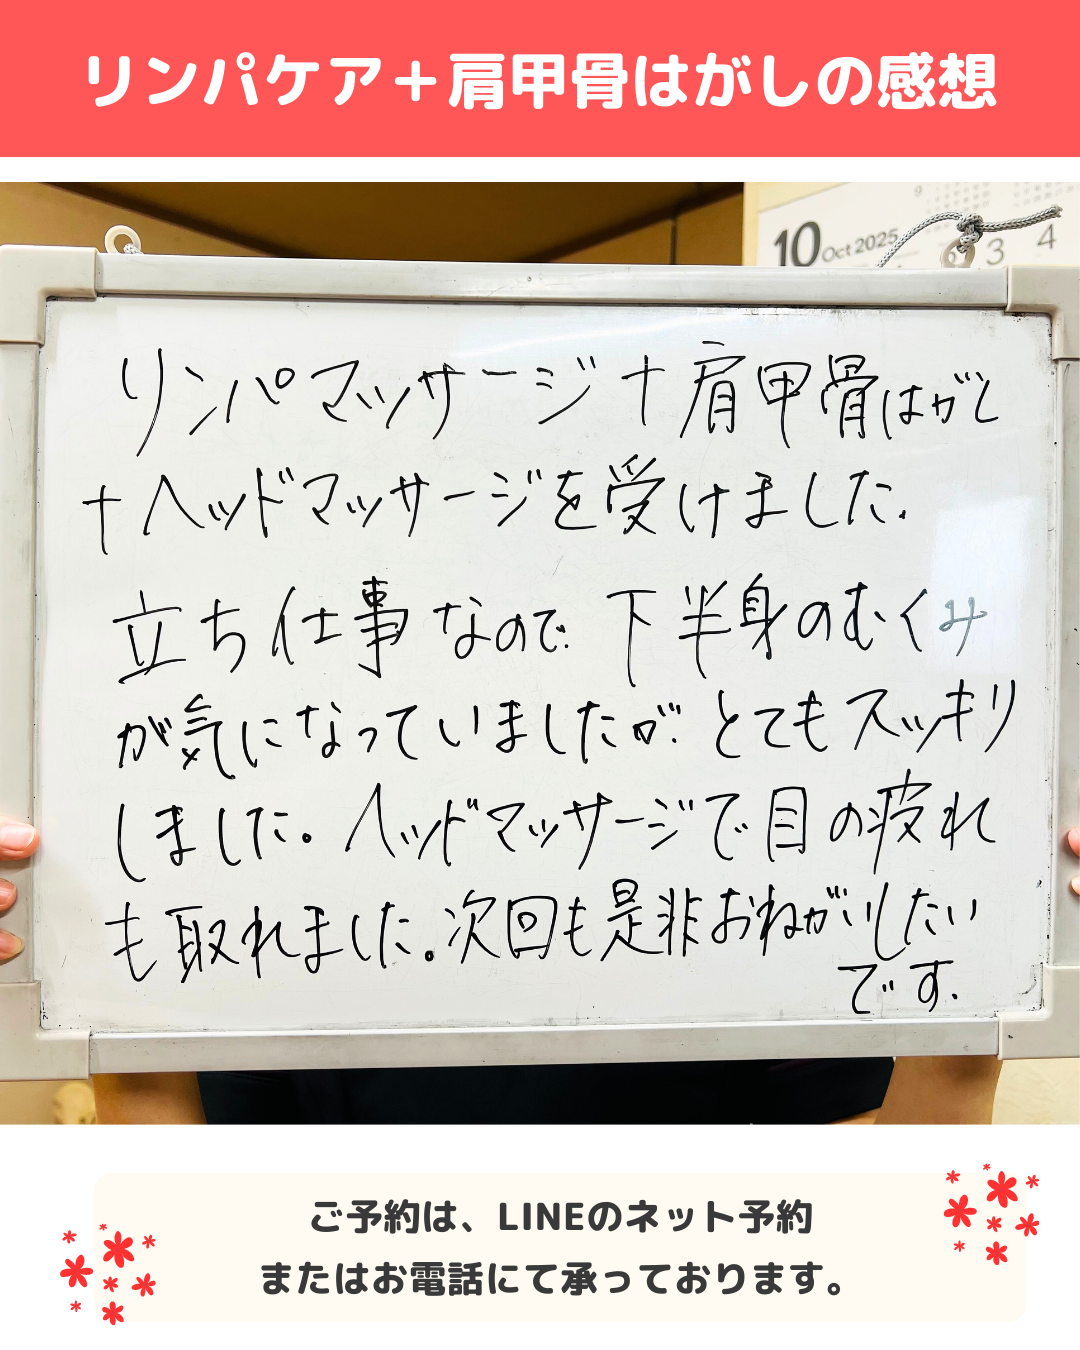 リンパケア＋肩甲骨はがしの感想
10 Oct 2025
9
3 4
リンパマッサージ＋肩甲骨はがし
＋ヘッドマッサージを受けました.
立ち仕事なので. 下半身のむくみ
が気になっていましたが. とてもスッキリ
しました。ヘッドマッサージで目の疲れ
も取れました。次回も是非おねがいしたい
です.
ご予約は、LINEのネット予約
またはお電話にて承っております。